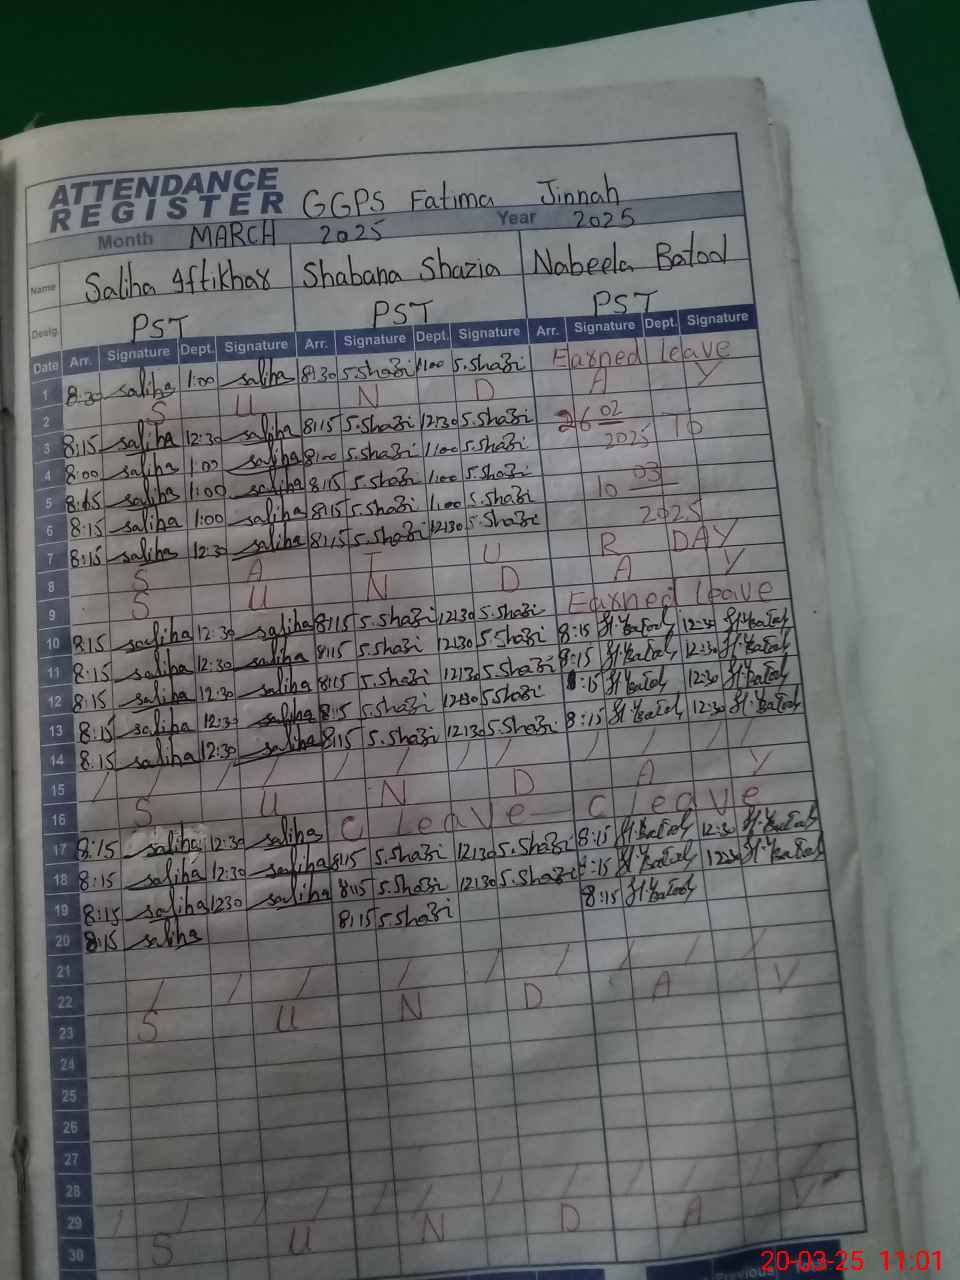 ATTENDANCE
REGISTER GGPS Fatima Jinnah
Month MARCH 2025 Year 2025
Name Saliha Iftikhar Shabana Shazia Nabeela Batool
Desig. PST PST PST
Date Arr. Signature Dept. Signature Arr. Signature Dept. Signature Arr. Signature Dept. Signature
1 8:30 saliha 1:00 saliha 8:30 S.Shazi 1:00 S.Shazi Earned leave
2 S U N D A Y
3 8:15 saliha 12:30 saliha 8:15 S.Shazi 12:30 S.Shazi 26 02 2025 To
4 8:00 saliha 1:00 saliha 8:00 S.Shazi 1:00 S.Shazi
5 8:15 saliha 1:00 saliha 8:15 S.Shazi 1:00 S.Shazi 10 03
6 8:15 saliha 1:00 saliha 8:15 S.Shazi 1:00 S.Shazi 2025
7 8:15 saliha 12:30 saliha 8:15 S.Shazi 12:30 S.Shazi
8 S A T U R DAY
9 S U N D A Y
10 8:15 saliha 12:30 saliha 8:15 S.Shazi 12:30 S.Shazi Earned leave
11 8:15 saliha 12:30 saliha 8:15 S.Shazi 12:30 S.Shazi 8:15 12:30
12 8:15 saliha 12:30 saliha 8:15 S.Shazi 12:30 S.Shazi 8:15 12:30
13 8:15 saliha 12:30 saliha 8:15 S.Shazi 12:30 S.Shazi 8:15 12:30
14 8:15 saliha 12:30 saliha 8:15 S.Shazi 12:30 S.Shazi 8:15 12:30
15 / / / / / / / / / / / /
16 S U N D A Y
17 8:15 saliha 12:30 saliha C leave C leave
18 8:15 saliha 12:30 saliha 8:15 S.Shazi 12:30 S.Shazi 8:15 12:30
19 8:15 saliha 1230 saliha 8:15 S.Shazi 12:30 S.Shazi 8:15 12:30
20 8:15 saliha 8:15 S.Shazi 8:15
21
22 / / / / / / / / /
23 S U N D A Y
24
25
26
27
28
29 / / / / / / / / / / / /
30 S U N D A Y
Previous
20-03-25 11:01